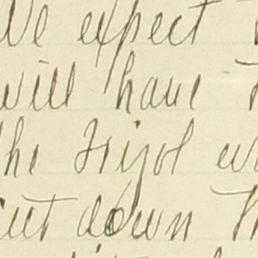 We expect
will have
the Frijol
cut down